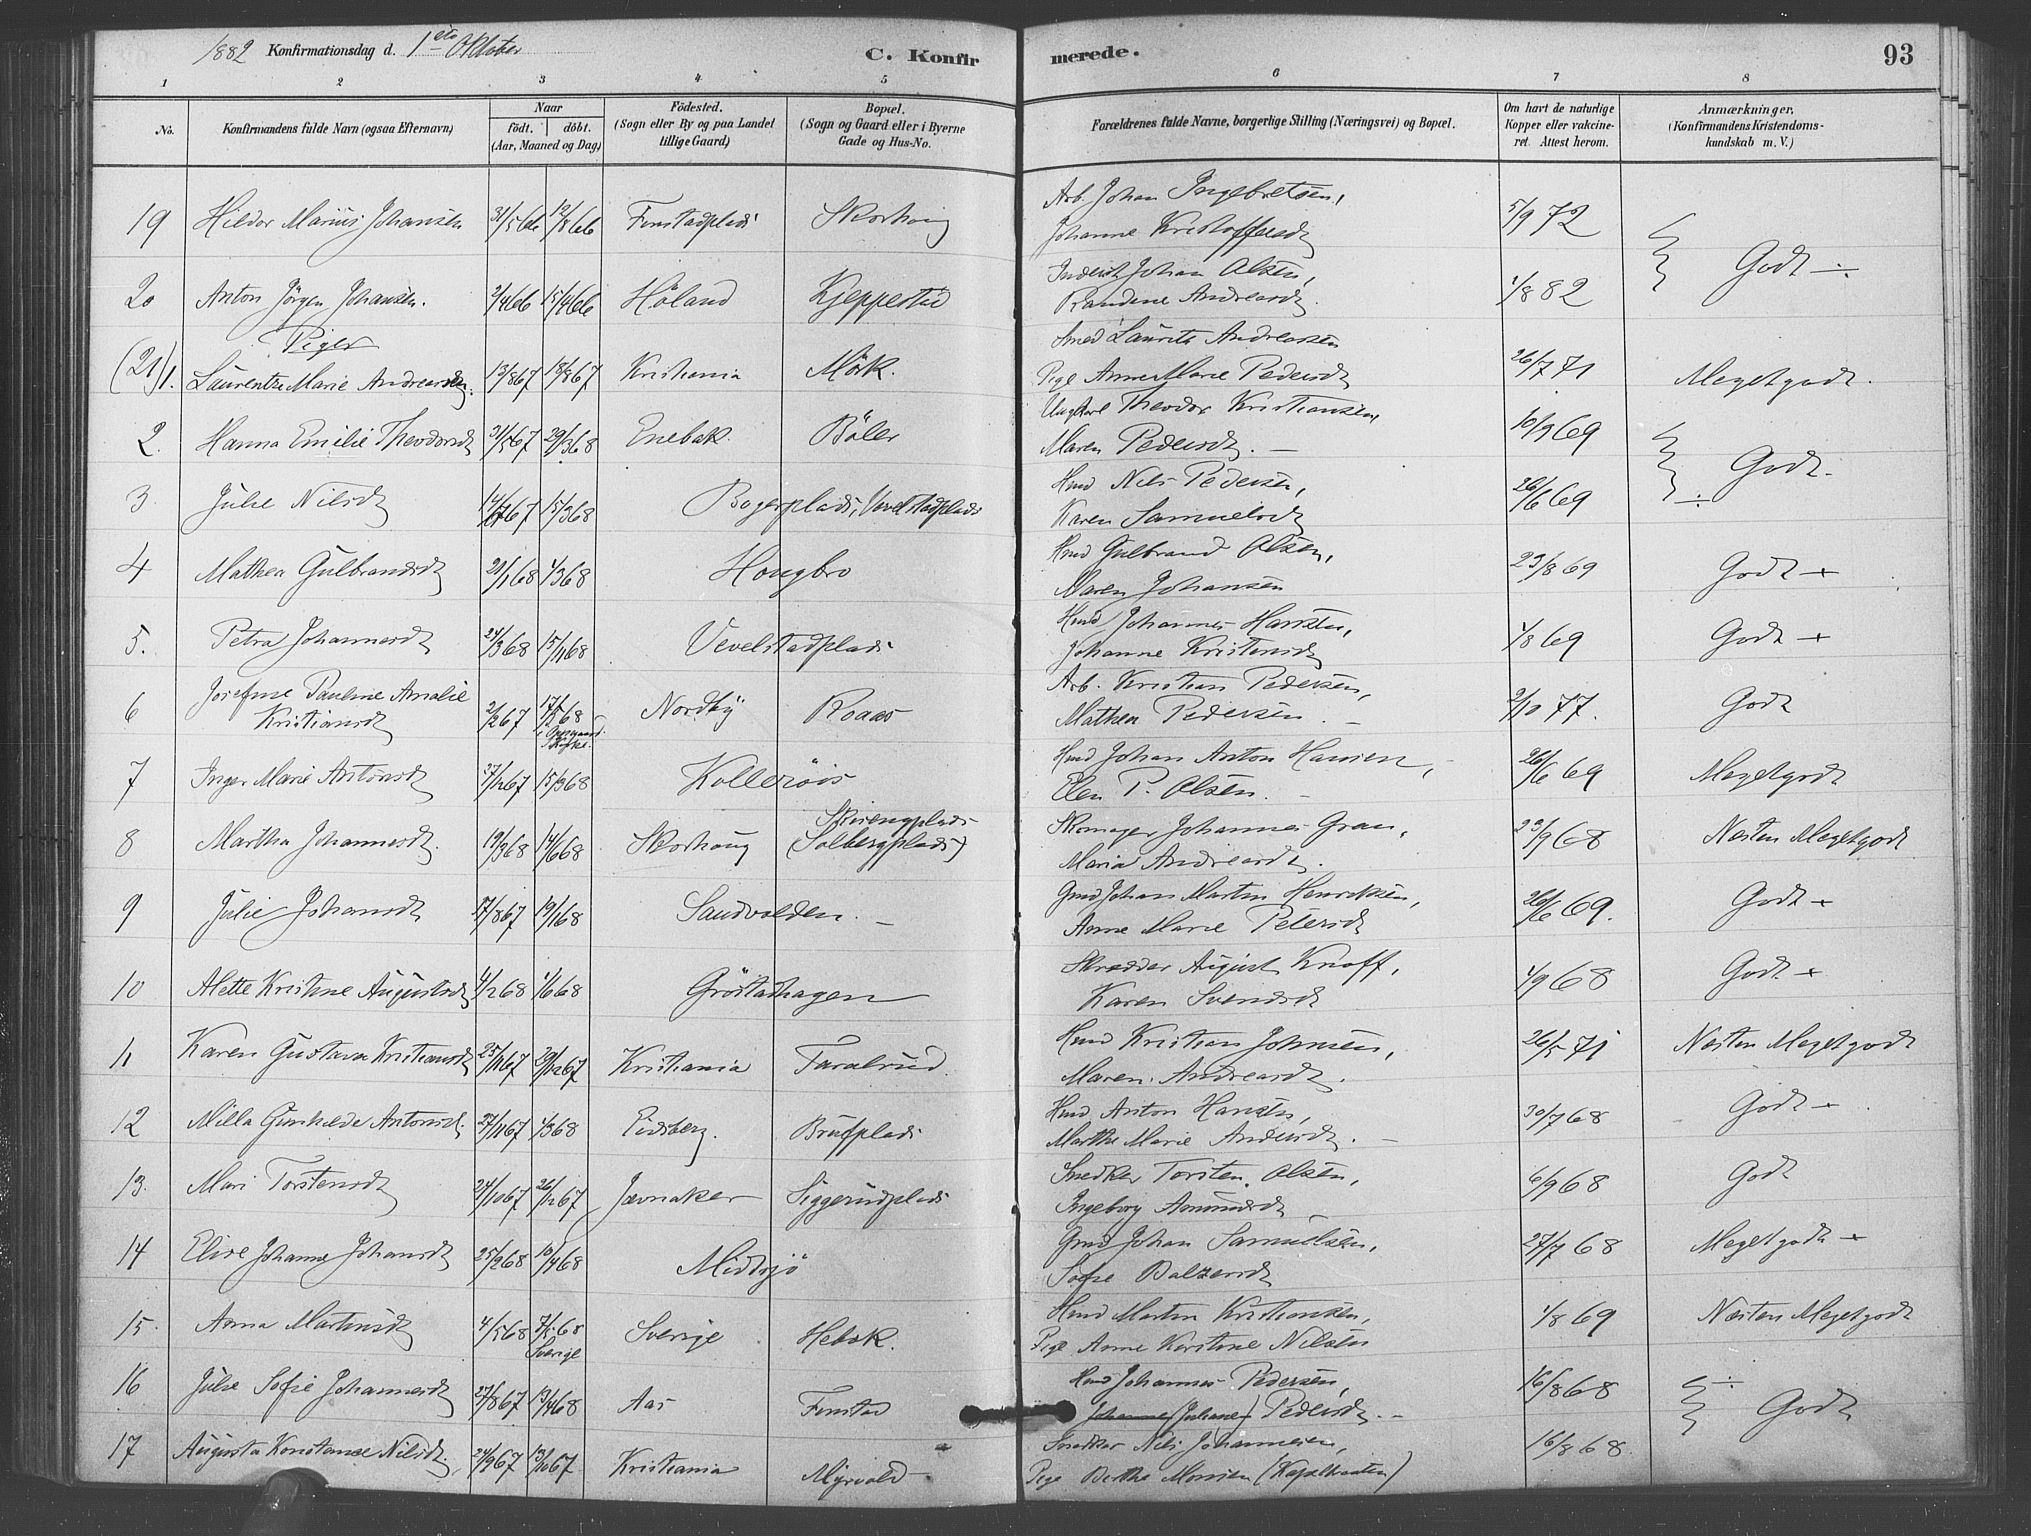 1882 Konfirmationsdag d. 1ste Oktober
C. Konfirmerede.
93
1 2 3 4 5 6 7 8
No.
Konfirmandens fulde Navn (ogsaa Efternavn)
Naar
födt. döbt.
(Aar, Maaned og Dag)
Födested.
(Sogn eller By og paa Landet
tillige Gaard)
Bopæl.
(Sogn og Gaard eller i Byerne
Gade og Hus-No.
Forældrenes fulde Navne, borgerlige Stilling (Næringsvei) og Bopæl.
Om havt de naturlige
Kopper eller vakcine-
ret. Attest herom.
Anmærkninger.
(Konfirmandens Kristendoms-
kundskab m. V.)
19 Hildor Marius Johansen 31/5 66 12/8 66 Finstadplads Skorhoug Arb. Johan Ingebretsen, 5/9 72
Johanne Kristoffersd.
Godt ÷
20 Anton Jörgen Johansen. 2/4 66 15/4 66 Höland Kjeppestad Johan Olsen, 1/8 82
Randine Andreasd.
Piger
(21) 1. Laurentze Marie Andreasen. 13/8 67 18/8 67 Kristiania Mörk. Smed Laurits Andreassen 26/7 71 Megetgodt.
Pige Anne Marie Pedersd.
2. Hanna Emilie Theodorsd. 31/5 67 29/3 68 Enebak Böler Ungkarl Theodor Kristiansen, 10/9 69
Maren Pedersd. —
Godt.
3 Julie Nilsd. 14/7 67 15/3 68 Bogerplads, Vevelstadplads Hmd Nils Pedersen, 26/6 69
Karen Samuelsd. ÷
4 Mathea Gulbrandsd. 21/1 68 1/3 68 Hougbro Hmd Gulbrand Olsen, 23/8 69 Godt +
Maren Johansen
5. Petra Johannesd. 24/3 68 15/11 68 Vevelstadplads Hmd Johannes Hansen, 1/8 69 Godt +
Johanne Kristensd.
6 Josefine Pauline Amalie
Kristiansd. 2/2 67 17/5 68 Nordby Roaas Arb. Kristian Pedersen, 2/10 77. Godt
i Opegaard
Kirke.
Mathea Pedersen. —
7 Inger Marie Antonsd. 27/12 67 15/3 68 Kolleröis Hmd Johan Anton Hansen, 26/6 69 Megetgodt
Elen P. Olsen. —
8 Martha Johannesd. 19/3 68 14/6 68 Skorhoug Skirengplads
(Solbergplads) Skomager Johannes Gran, 23/9 68 Næsten Megetgodt
Maria Andreasd.
9 Julie Johansd. 17/8 67 19/1 68 Sandvolden. — Gmd Johan Martin Henriksen, 26/6 69. Godt +
Anne Marie Petersd.
10 Alette Kristine Augustsd. 4/2 68 1/6 68 Gröstadhagen Skrædder August Knoff, 1/9 68 Godt +
Karen Svendsd.
11 Karen Gustava Kristiansd. 25/11 67 29/12 67 Kristiania Taralrud. Hmd Kristian Johnsen, 26/5 71 Næsten Megetgodt
Maren Andreasd.
12 Milla Gunhilde Antonsd. 27/11 67 1/3 68 Eidsberg. Brudplads Hmd Anton Hansen, 30/7 68 Godt +
Marthe Marie Andersd. —
13. Mari Torstensd. 24/10 67 26/12 67 Jævnaker Siggerudplads Snedker Torsten Olsen, 6/9 68 Godt
Ingeborg Amundsd. —
14 Elise Johanne Johansd. 25/2 68 10/4 68 Midtsjö Gmd Johan Samuelsen, 27/7 68 Megetgodt +
Sofie Balzersd.
15. Anna Martinsd. 4/5 68 7/5 68 Sverige Hebæk. Hmd Martin Kristiansen, 1/8 69 Næsten Megetgodt
Sverige
Pige Anne Kirstine Nilsen
16 Julie Sofie Johannesd. 27/8 67 13/4 68 Aas Finstad Hmd Johannes Pedersen, 16/8 68 ÷
Johanne (Juliane) Pedersd. —
Godt
17 Augusta Konstance Nilsd. 24/9 67 13/10 67 Kristiania Myrvold Snedker Nils Johannesen, 16/8 68.
Pige Berthe Monsen